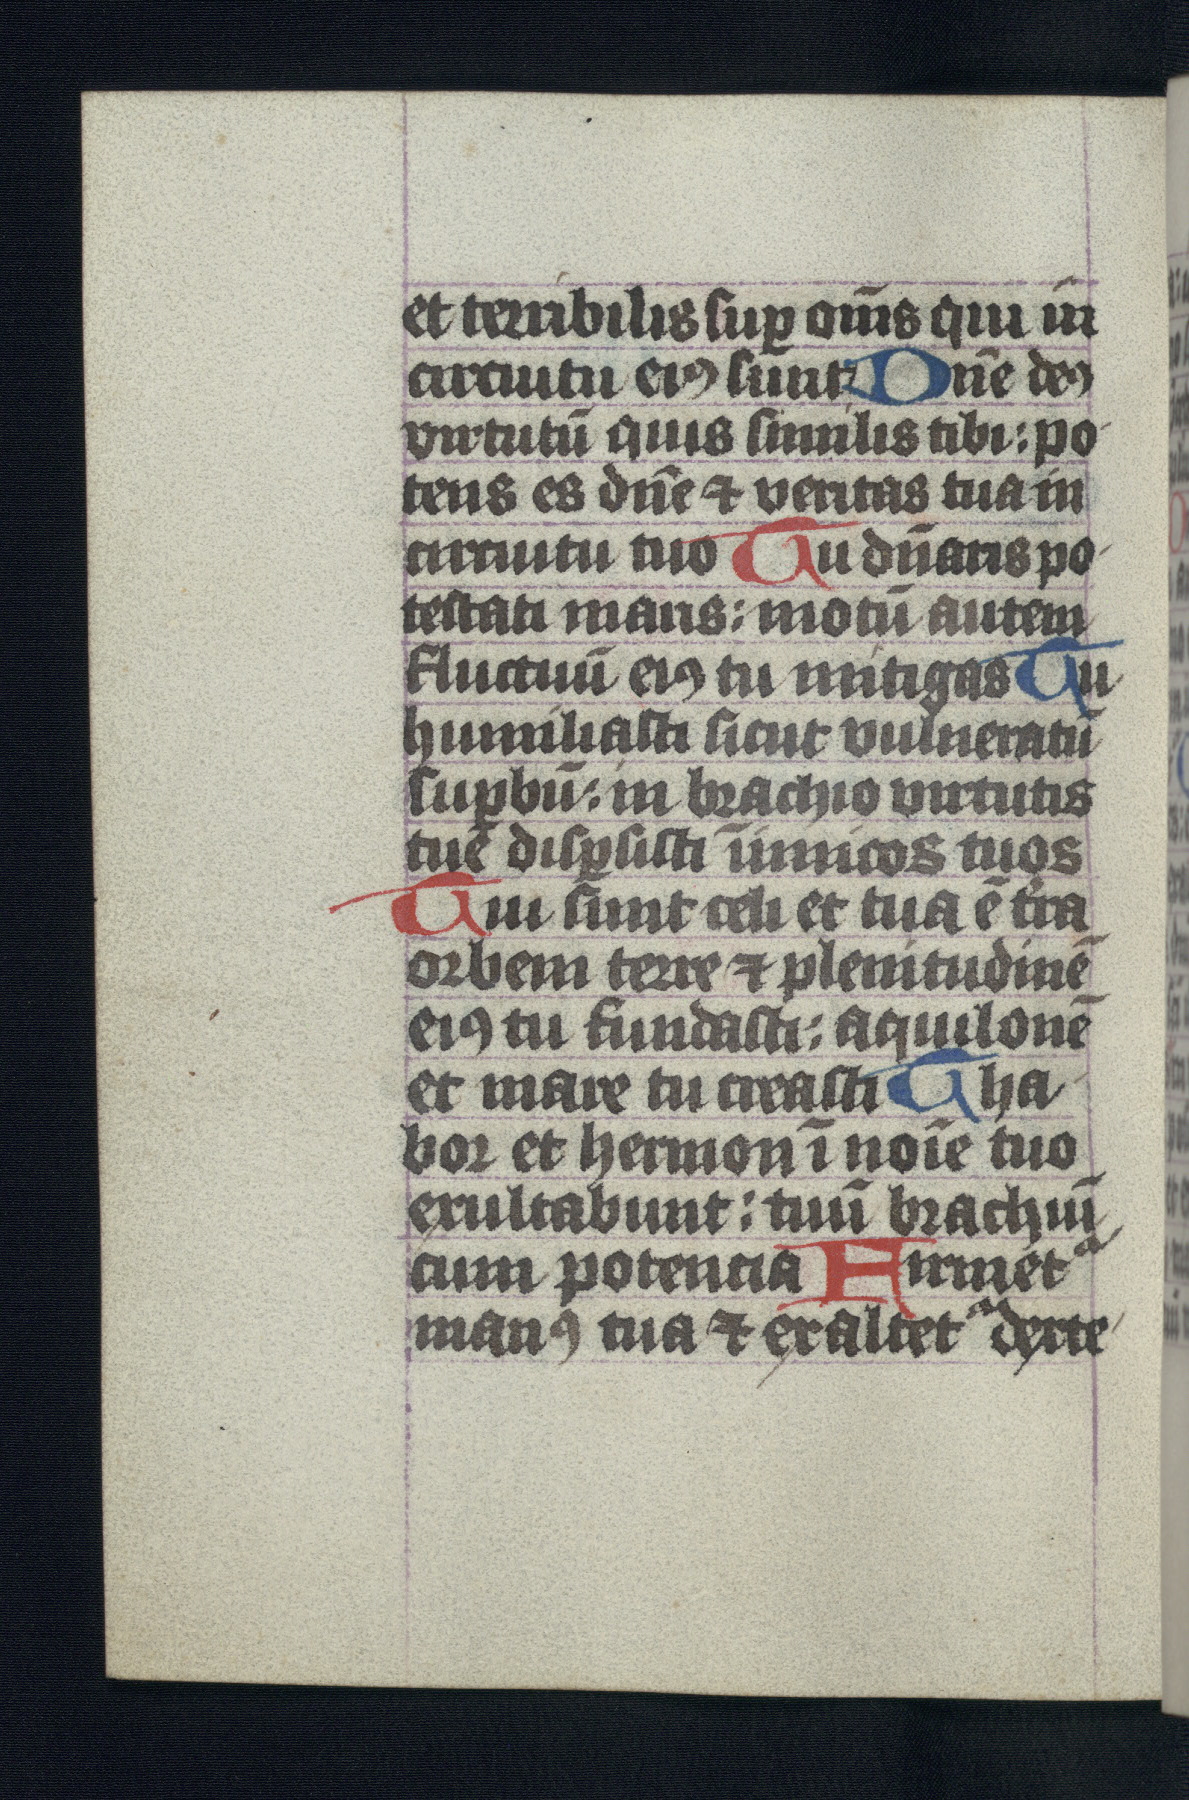 et terribilis sup̲ om̄s qui in
circuitu eiꝰ sunt Dn̄e deꝰ
virtutū quis similis tibi: po-
tens es dn̄e ⁊ veritas tua in
circuitu tuo Tu dn̄aris po-
testati maris: motū autem
fluctuū eiꝰ tu mitigas Tu
humiliasti sicut vulneratū
suꝑbū: in brachio virtutis
tue disꝑsisti īimicos tuos
Tui sunt celi et tua ē t̄ra
orbem terre ⁊ plenitudinē
eiꝰ tu fundasti: aquilonē
et mare tu creasti Tha-
bor et hermon ī noīe tuo
exultabunt: tuū brachiū
cum potencia Firmetᵃ
manꝰ tua ⁊ exaltetᵃ dexte-